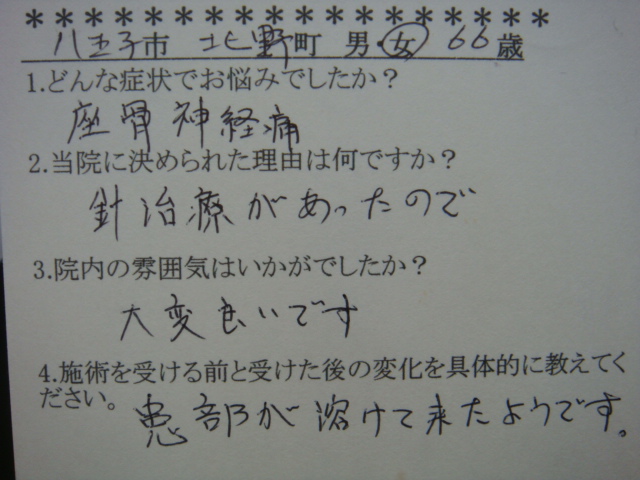 ＊＊＊＊＊＊＊＊＊＊＊＊＊＊＊＊＊＊＊＊＊＊＊＊
八王子市 北野町 男・女 66歳
1.どんな症状でお悩みでしたか？
座骨神経痛
2.当院に決められた理由は何ですか？
針治療があったので
3.院内の雰囲気はいかがでしたか？
大変良いです
4.施術を受ける前と受けた後の変化を具体的に教えてく
ださい。
患部が溶けて来たようです。